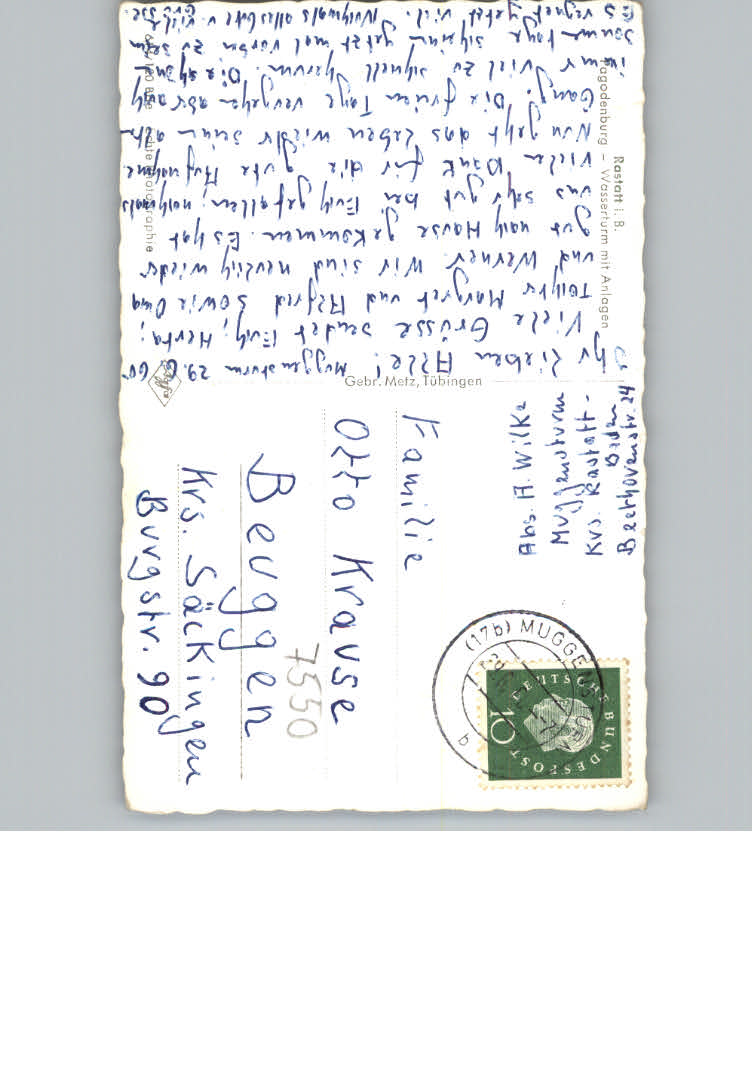 Muggensturm 29.6.60
Ihr lieben Alle!
Viele Grüsse sendet Euch, Herta,
Tochter Margret und Alfred sowie Oma
und Werner. Wir sind herzlich wieder
gut nach Hause gekommen. Es hat
uns sehr gut bei Euch gefallen, nochmals
vielen Dank für die gute Aufnahme.
Nun geht das Leben wieder seinen alten
Gang. Die freien Tage vergehen aber auch
immer viel zu schnell herum. Die schönen
Sommertage scheinen jetzt mal vorbei zu sein
Es regnet jetzt viel. Nochmals alles Gute u. viele
Grüsse.
Rastatt i. B.
Pagodenburg – Wasserturm mit Anlagen
Gebr. Metz, Tübingen
Echte Photographie
Abs. A. Wilke
Muggensturm
Krs. Rastatt-
Baden
Beethovenstr. 24
(17b) MUGGENSTURM
a
DEUTSCHE BUNDESPOST
10
Familie
Otto Krause
7550
Beuggen
Krs. Säckingen
Burgstr. 90